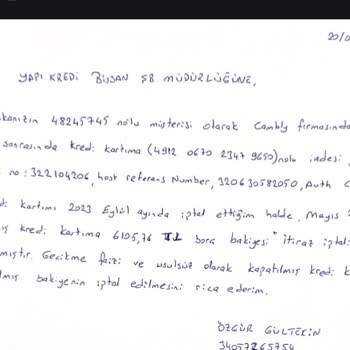 20/0
YAPI KREDİ BİSSAN ŞB. MÜDÜRLÜĞÜNE,
kanızın 48245745 nolu müşterisi olarak Cambly firmasında
sonrasında kredi kartıma (4912 0670 2347 9650) nolu iadesi
no: 322104206, host referans Number, 320630582050, Auth C
kartımı 2023 Eylül ayında iptal ettiğim halde, Mayıs 2
kredi kartıma 6195,76 TL borç bakiyesi "itiraz iptal
mıştır. Gecikme faizi ve usulsüz olarak kapatılmış kredi k
mış bakiyenin iptal edilmesini rica ederim.
ÖZGÜR GÜLTEKİN
34057265754